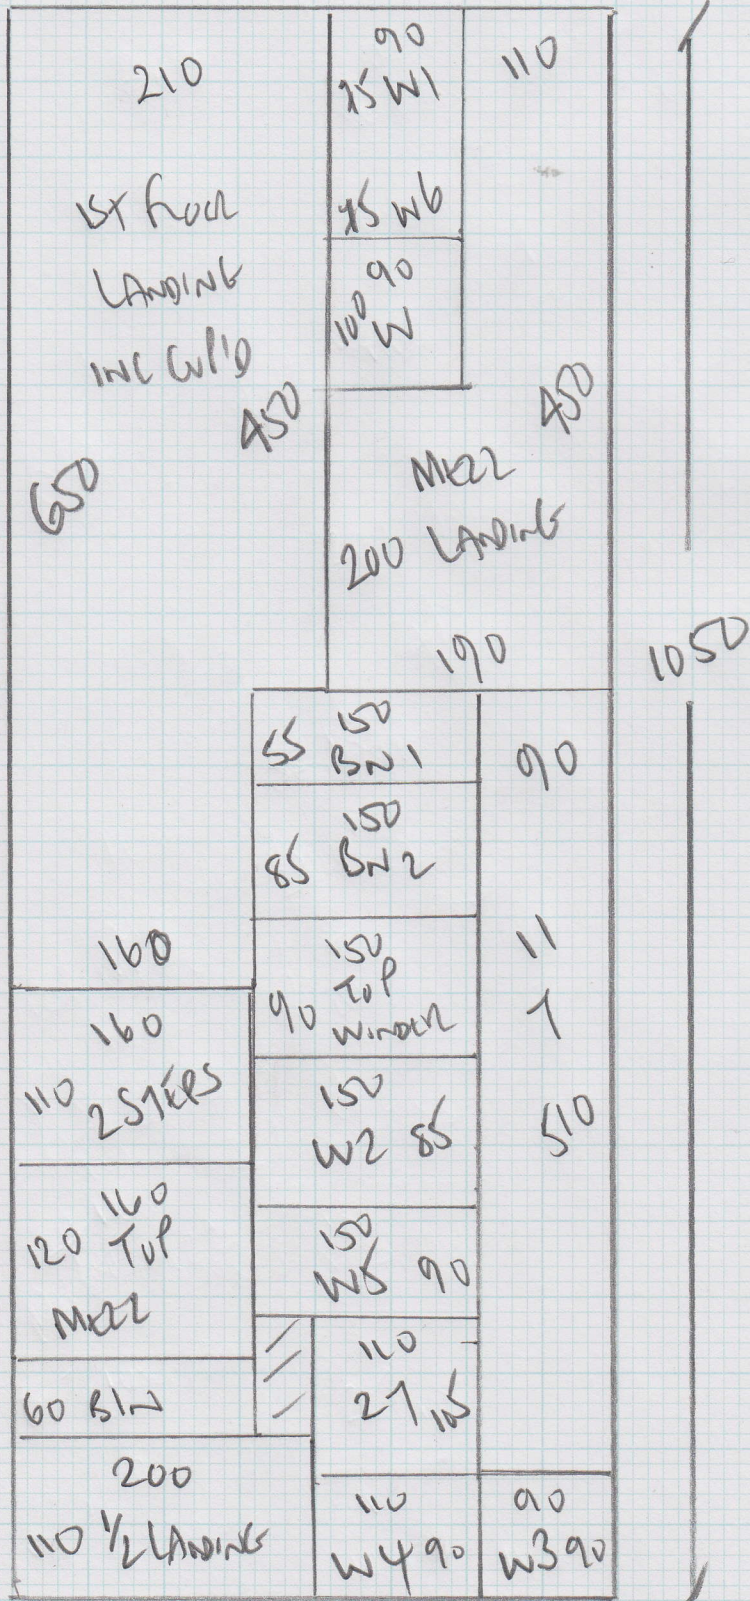 210
1ST FLOOR
LANDING
INC CUP'D
450
650
160
90
75 W1
75 W6
90
100 W
110
450
MEZZ
200 LANDING
190
1050
55 150
BN1
150
85 BN2
150
90 TOP
WINDER
150
W2 85
150
W5 90
90
11
7
510
160
110 2 STEPS
160
120 TOP
MEZZ
60 BIN
200
110 1/2 LANDING
110
27 105
110
W4 90
90
W3 90